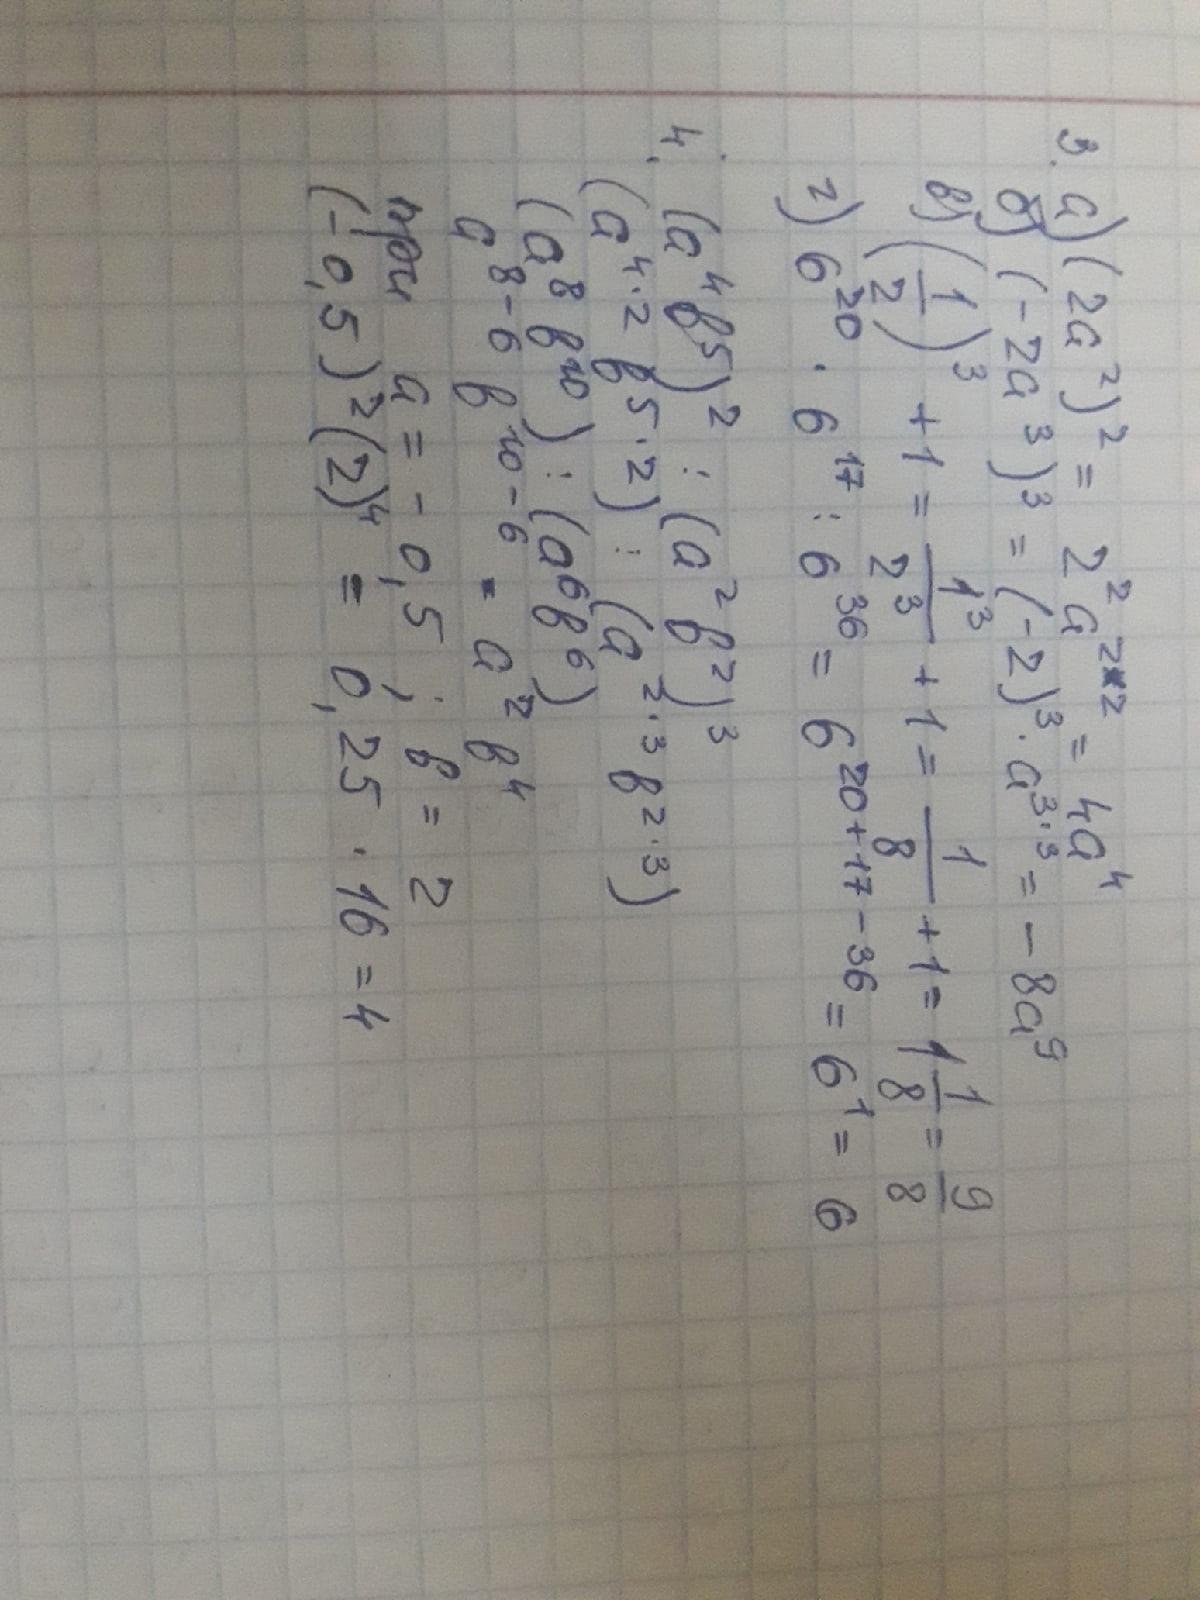 3. а) (2a²)² = 2²a²*² = 4a⁴
б) (-2a³)³ = (-2)³·a³·³ = -8a⁹
в) (1/2)³ + 1 = 1³/2³ + 1 = 1/8 + 1 = 1 1/8 = 9/8
г) 6²⁰ · 6¹⁷ : 6³⁶ = 6²⁰⁺¹⁷⁻³⁶ = 6¹ = 6
4. (a⁴b⁵)² : (a²b²)³
(a⁴·²b⁵·²) : (a²·³b²·³)
(a⁸b¹⁰) : (a⁶b⁶)
a⁸⁻⁶b¹⁰⁻⁶ = a²b⁴
при a = -0,5; b = 2
(-0,5)²(2)⁴ = 0,25 · 16 = 4